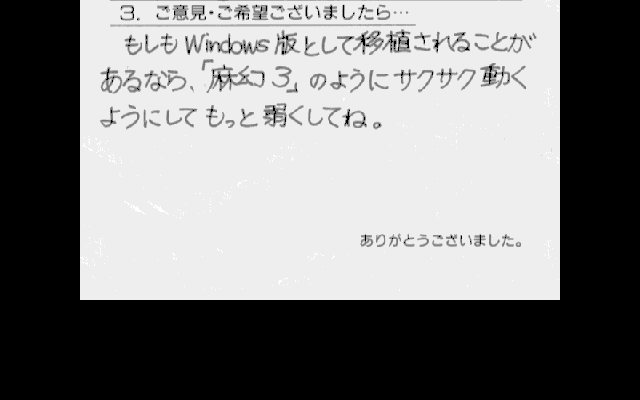 3. ご意見・ご希望ございましたら…
もしもWindows版として移植されることが
あるなら、「麻幻3」のようにサクサク動く
ようにしてもっと弱くしてね。
ありがとうございました。